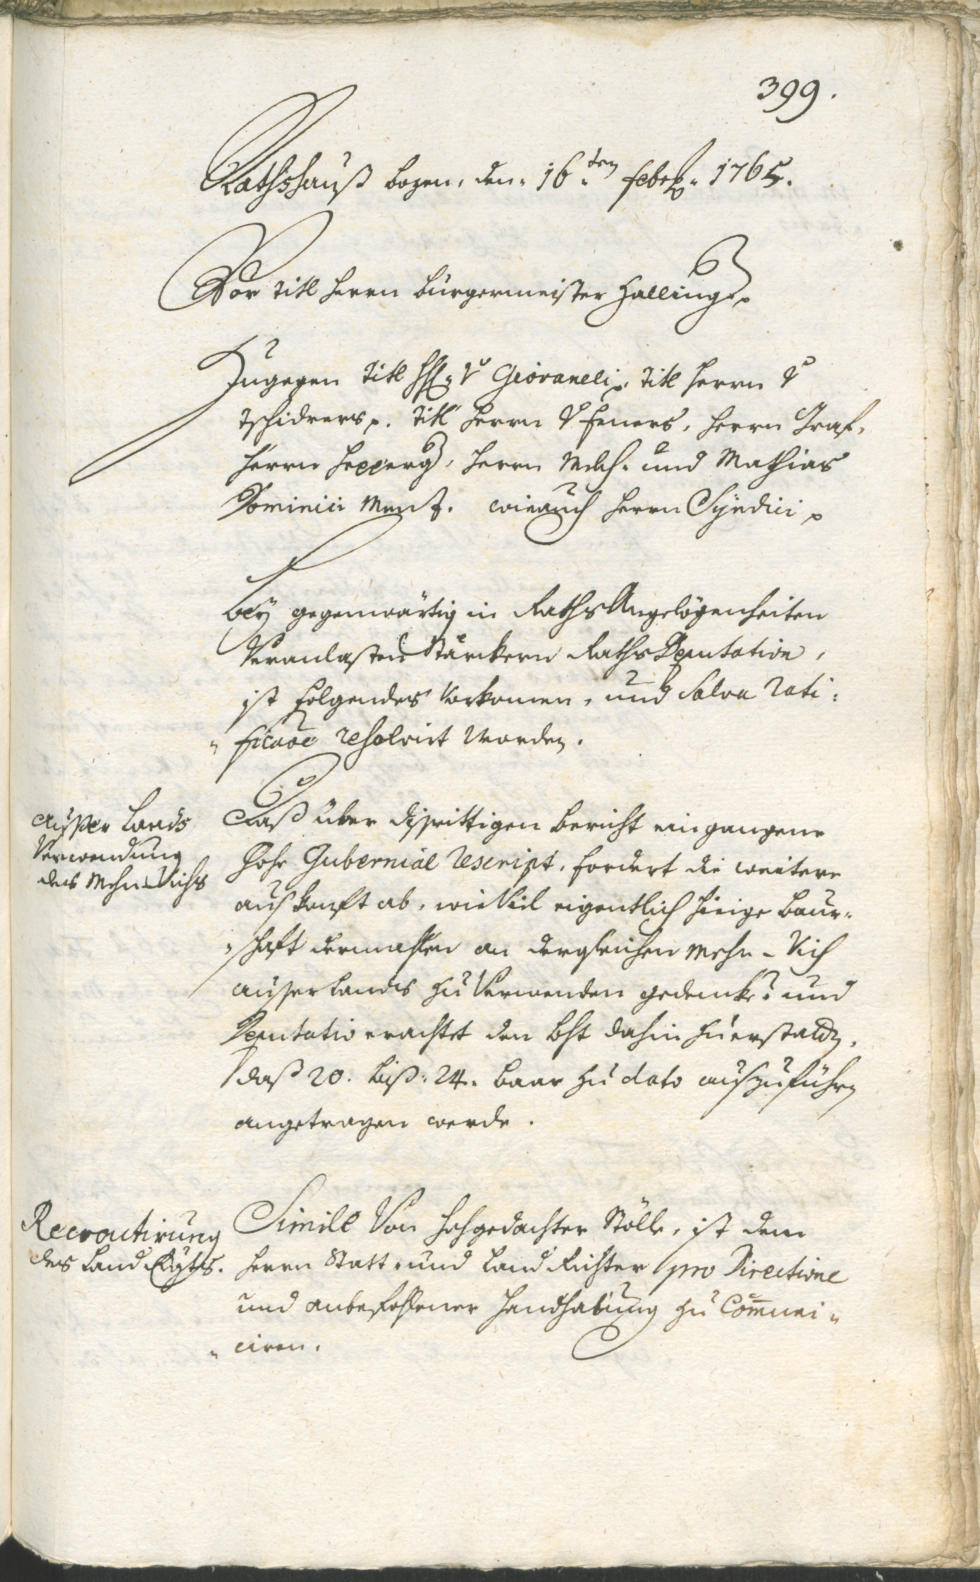 399.
Rathshauß Bozen, den 16.ten Febr. 1765.
Vor titl Herrn Burgermeister Hallinger
Zugegen titl H: v Giovaneli, titl Herrn v
Tschidrers p. titl Herrn v Feners, Herrn Graf,
Herrn Hepperg, Herrn Melch. und Mathias
Dominici Menz. wieauch Herrn Syndici p
Bey gegenwärtig in Raths Angelögenheiten
Veranlasten stärckern Raths Deputation,
ist folgendes Vorkomen, und Salva rati:
"ficaõe resolvirt worden.
Ausser Lands
Verwendung
des Mehr Vichs
Daß über disseittigen Bericht eingangene
Hohe Gubernial Rescript, fordert die weitere
auskonft ab, wieviel eigentlich hiesige Baur-
"schaft dermahlen an dergleichen Mehr-Vich
ausser Lands zu Verwenden gedencke? und
Deputatio erachtet den Bht dahin zu erstatten,
daß 20. biß 24. Baar zu dato auszuführen
angetragen werde.
Recroutirung
des Land Rgts.
Simile Von hochgedachter Stölle, ist dem
Herrn Statt- und Land Richter pro Directione
und anbefohlener Handhabung zu Com̅uni"
"ciren.